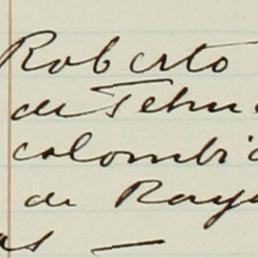 Roberto
de Tehu
colombi
de Ray
as —